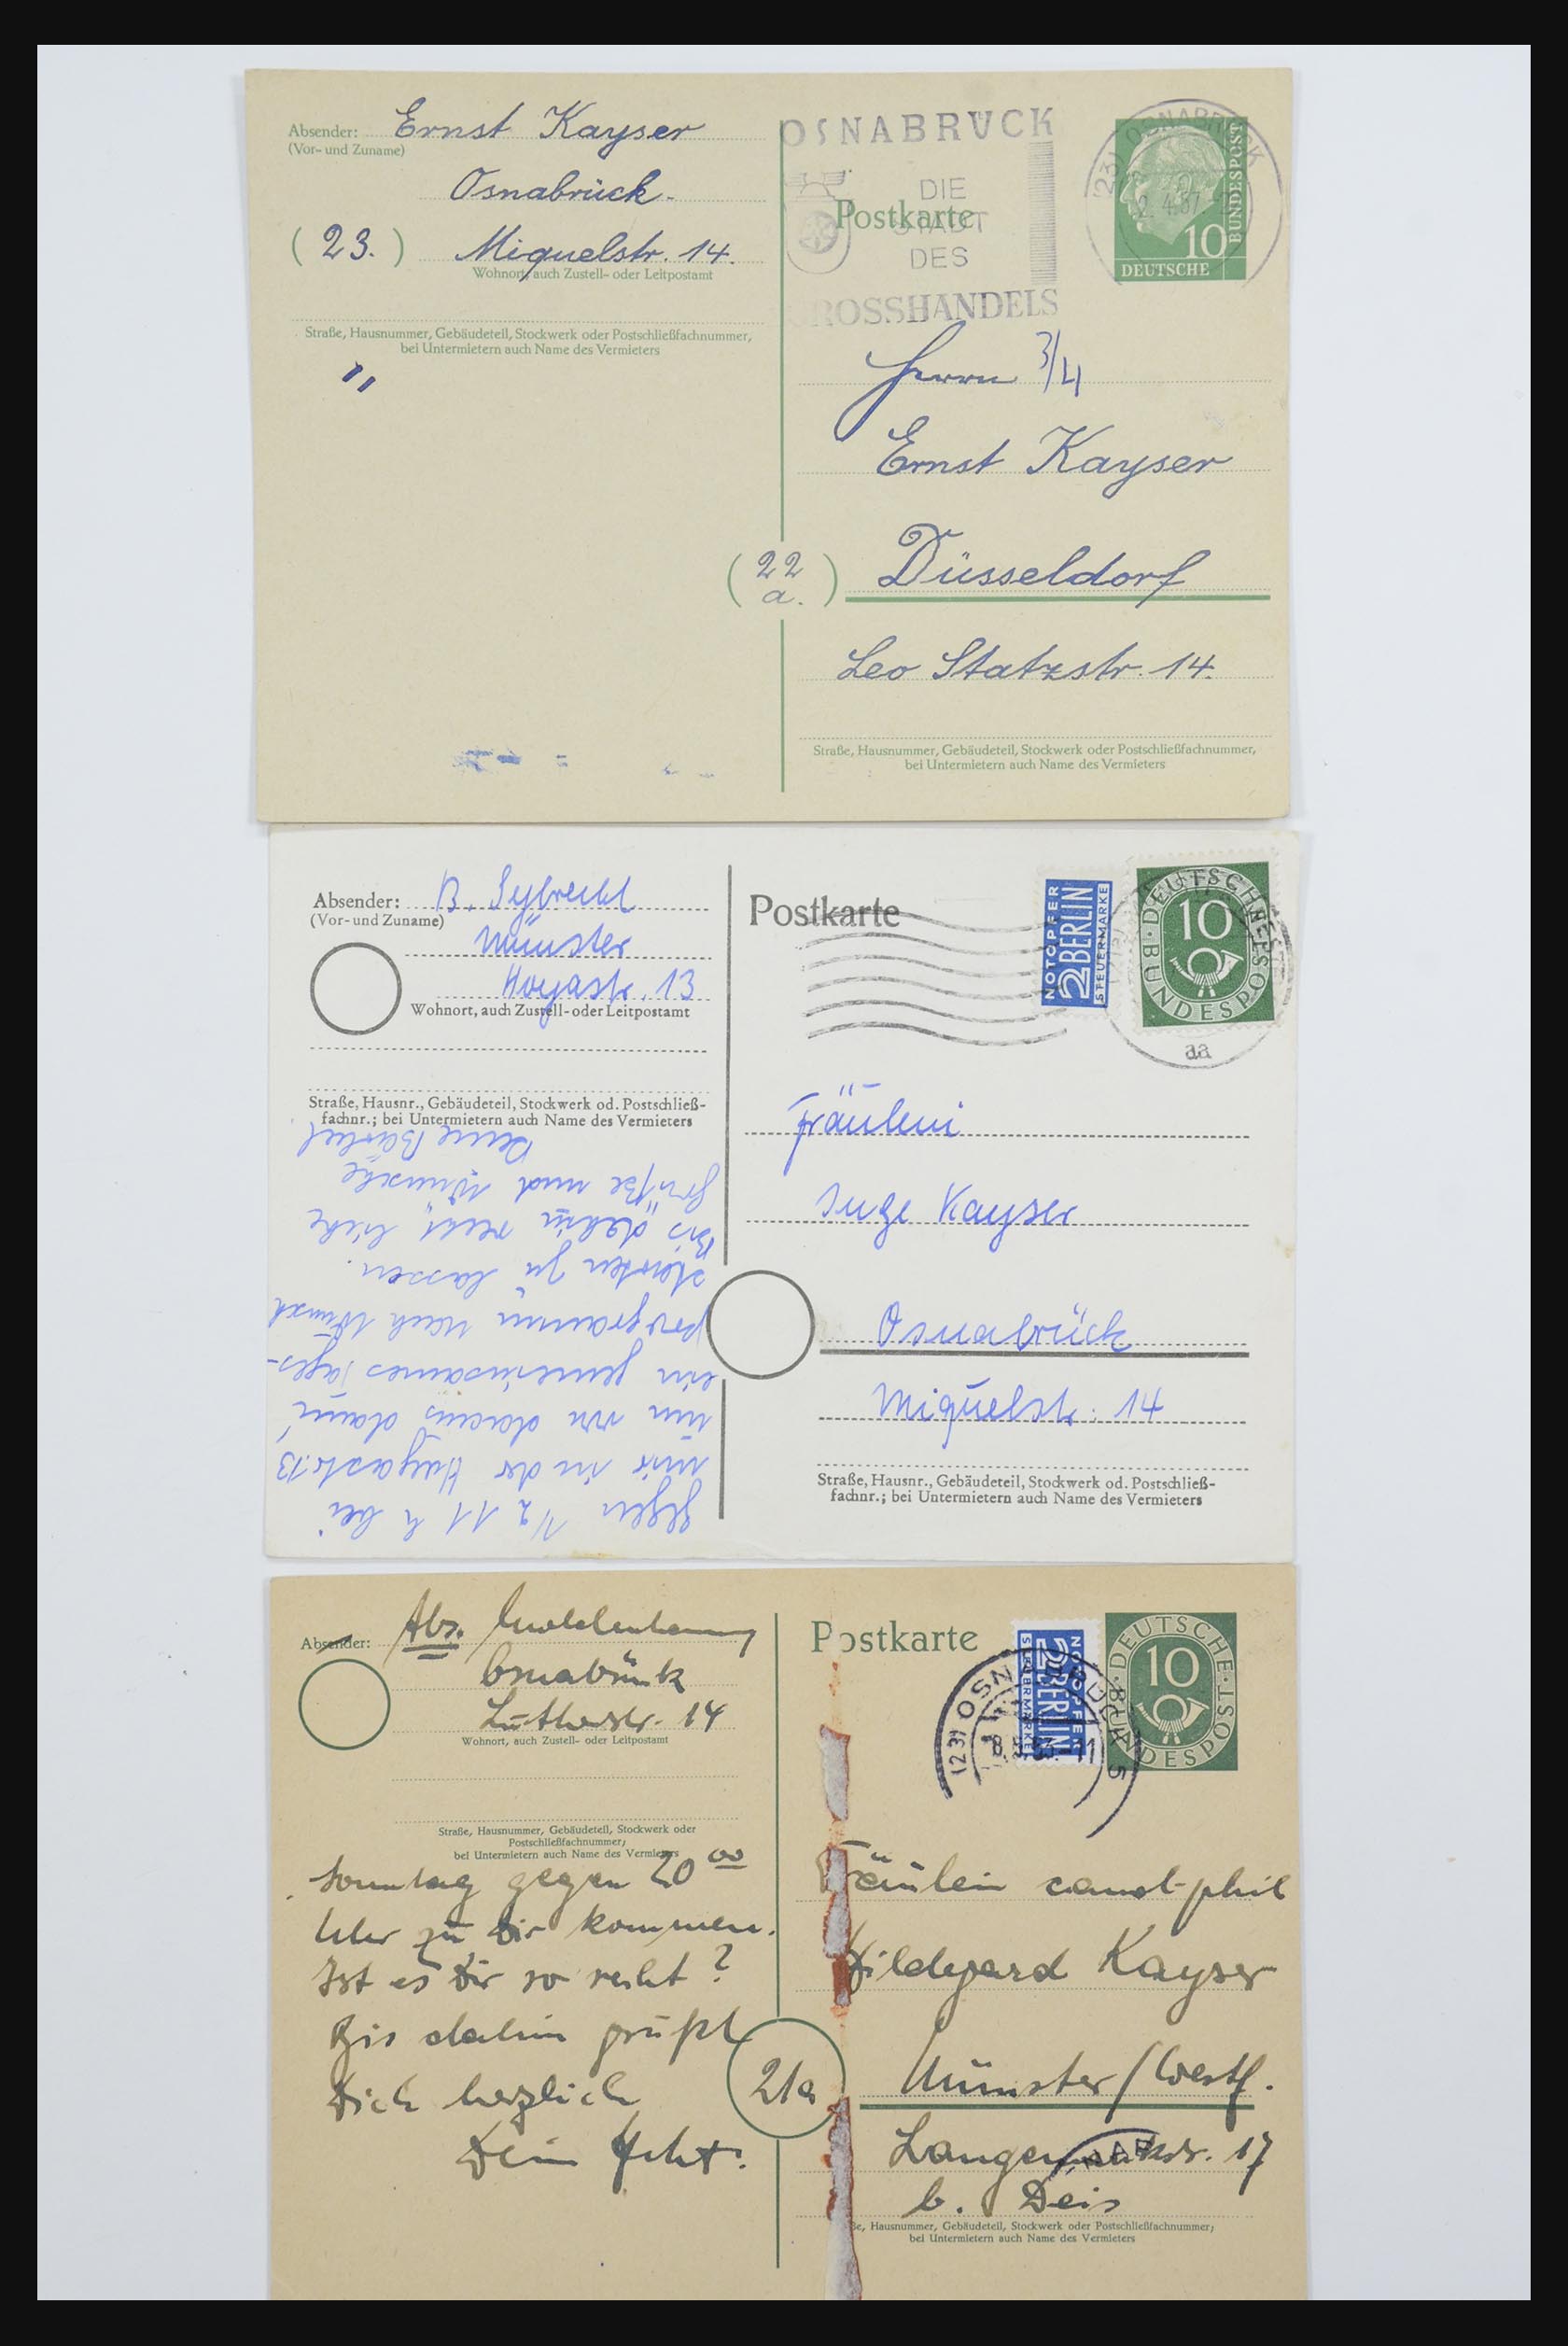 Absender: Ernst Kayser
(Vor- und Zuname)
Osnabrück.
(23.) Miquelstr. 14.
Wohnort, auch Zustell- oder Leitpostamt
Straße, Hausnummer, Gebäudeteil, Stockwerk oder Postschließfachnummer,
bei Untermietern auch Name des Vermieters
OSNABRVCK
DIE
STADT
DES
GROSSHANDELS
Postkarte
(23) OSNABRÜCK
2.4.57
10
DEUTSCHE
BUNDESPOST
Herrn 3/4
Ernst Kayser
(22
a.) Düsseldorf
Leo Statzstr. 14.
Straße, Hausnummer, Gebäudeteil, Stockwerk oder Postschließfachnummer,
bei Untermietern auch Name des Vermieters
Absender: B. Sybrecht
(Vor- und Zuname)
Münster
Hoyastr. 13
Wohnort, auch Zustell- oder Leitpostamt
Straße, Hausnr., Gebäudeteil, Stockwerk od. Postschließ-
fachnr.; bei Untermietern auch Name des Vermieters
gegen 1/2 11 h bei
mir in der Hoyastr. 13
um von daraus dann
ein gemeinsames Tages-
programm nach Wunsch
starten zu lassen.
Bis dahin recht liebe
Grüße und Wünsche
Deine Bärbel
Postkarte
NOTOPFER
2 BERLIN
STEUERMARKE
DEUTSCHE
10
BUNDESPOST
aa
Fräulein
Inge Kayser
Osnabrück
Miquelstr. 14
Straße, Hausnr., Gebäudeteil, Stockwerk od. Postschließ-
fachnr.; bei Untermietern auch Name des Vermieters
Absender: Abs.
Osnabrück
Lutherstr. 14
Wohnort, auch Zustell- oder Leitpostamt
Straße, Hausnummer, Gebäudeteil, Stockwerk oder
Postschließfachnummer;
bei Untermietern auch Name des Vermieters
Sonntag gegen 20 00
Uhr zu Dir kommen.
Ist es Dir so recht?
Bis dahin grüßt
Dich herzlich
Dein
Postkarte
NOTOPFER
2 BERLIN
STEUERMARKE
(23) OSNABRÜCK 5
8.5.53.-11
DEUTSCHE
10
BUNDESPOST
Fräulein cand. phil
Hildegard Kayser
21a Münster/Westf.
Langemarckstr. 17
b. Deis
ße, Hausnummer, Gebäudeteil, Stockwerk oder Postschließfachnummer;
bei Untermietern auch Name des Vermieters